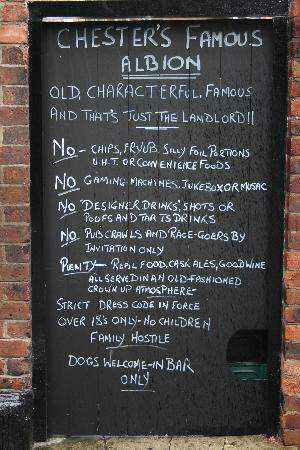 CHESTER'S FAMOUS
ALBION
OLD, CHARACTERFUL, FAMOUS
AND THAT'S JUST THE LANDLORD!!
NO - CHIPS, FRYUPS SILLY FOIL PORTIONS
U.H.T. OR CONVENIENCE FOODS
NO GAMING-MACHINES, JUKEBOX OR MUSAC
NO 'DESIGNER DRINKS', SHOTS OR
POOFS AND TARTS DRINKS
NO PUB CRAWLS AND RACE-GOERS BY
INVITATION ONLY
PLENTY - REAL FOOD, CASK ALES, GOOD WINE
ALL SERVED IN AN OLD-FASHIONED
GROWN UP ATMOSPHERE
STRICT DRESS CODE IN FORCE
OVER 18'S ONLY - NO CHILDREN
FAMILY HOSTILE
DOGS WELCOME - IN BAR
ONLY